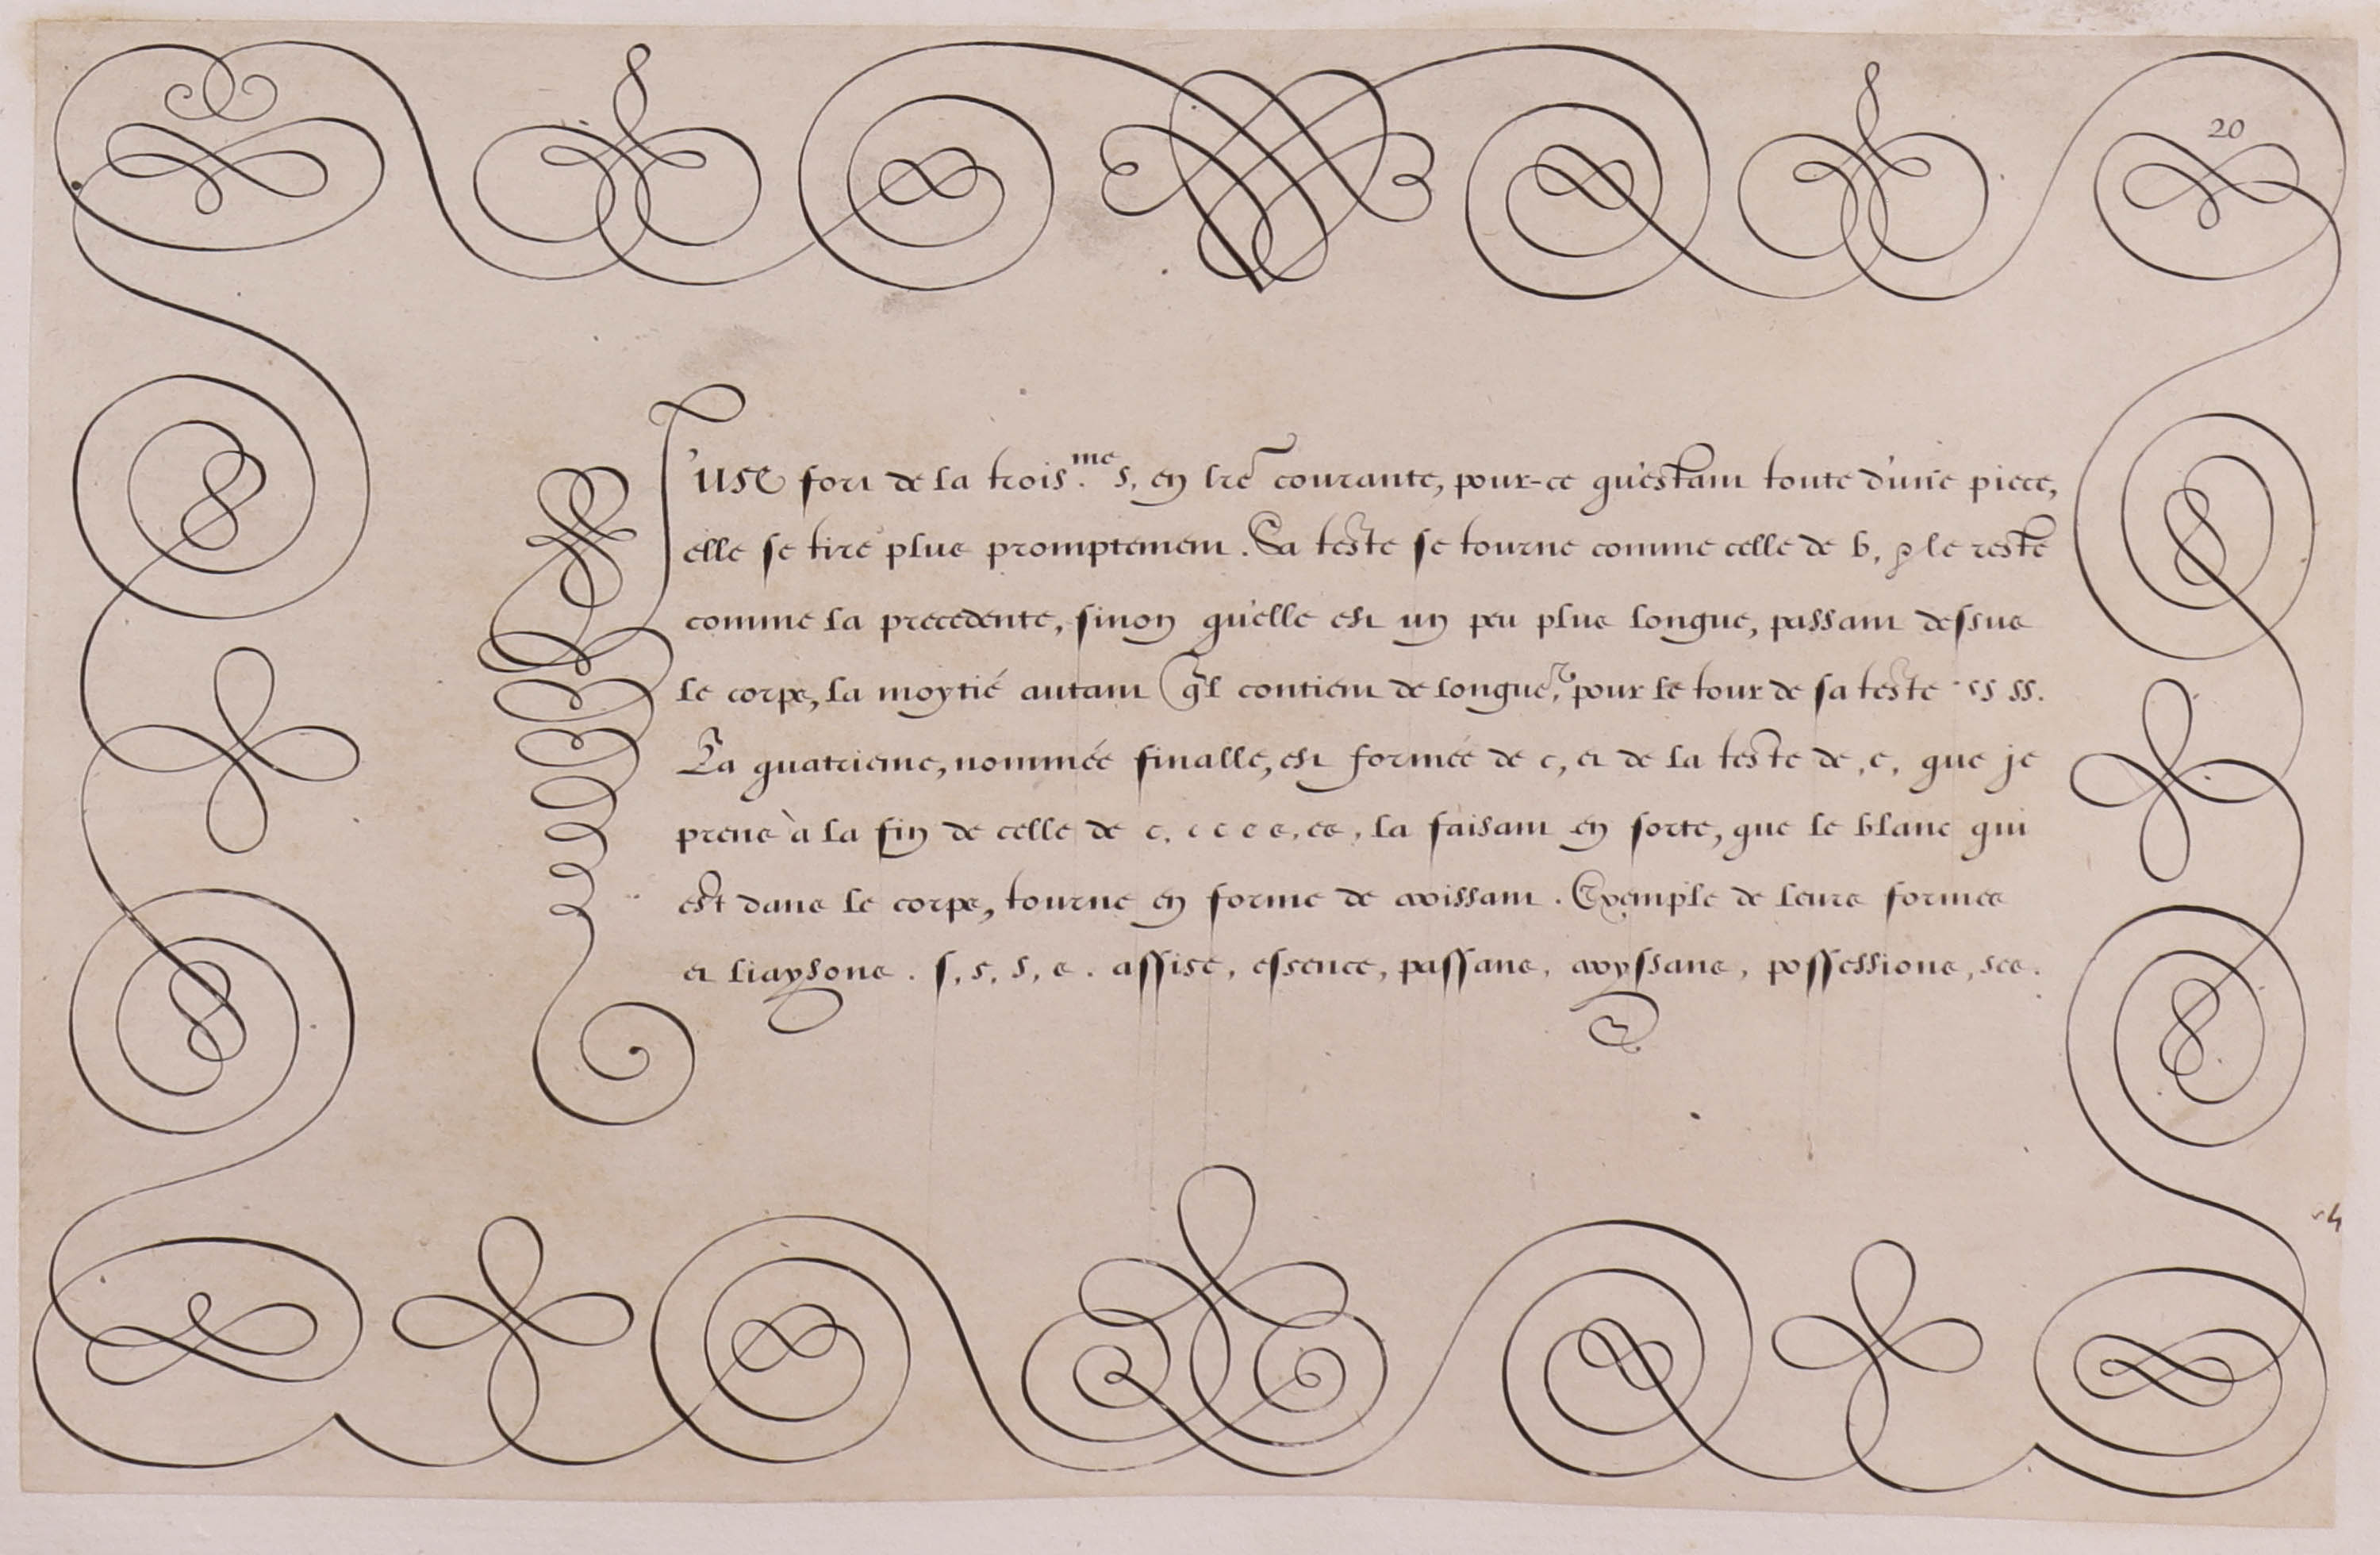 20
J'use fort de la trois.me s, en lr̃e courante, pour-ce qu'estant toute d'une piece,
elle se tire plus promptement. Sa teste se tourne comme celle de b, & le reste
comme la precedente, sinon qu'elle est un peu plus longue, passant dessus
le corps, la moytié autant q̃l contient de longueᵗ, pour le tour de sa teste ss ss.
La quatrieme, nommée finalle, est formée de c, et de la teste de, e, que je
prens à la fin de celle de c, c c c s, es, la faisant en sorte, que le blanc qui
est dans le corps, tourne en forme de croissant. Exemple de leurs formes
et liaysons. ſ, s, s, s. assise, essence, passans, croyssans, possessions, ses.